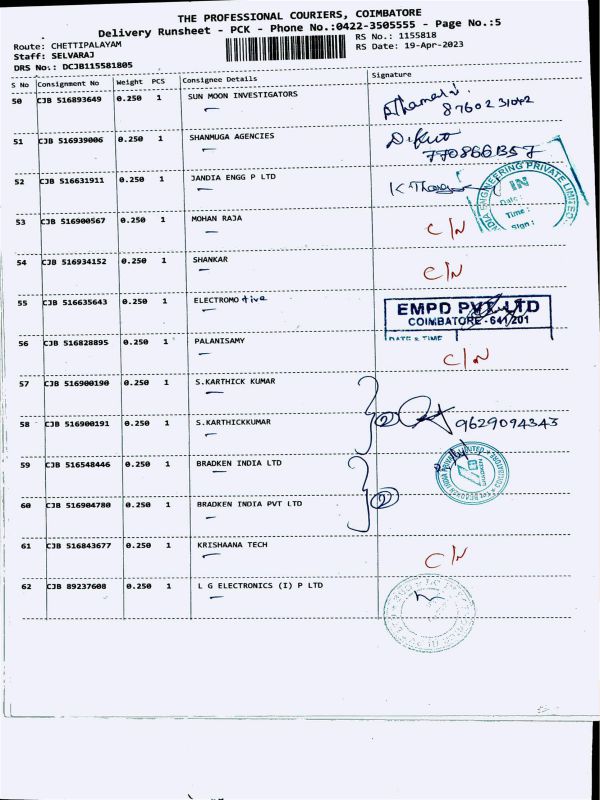 THE PROFESSIONAL COURIERS, COIMBATORE
Delivery Runsheet - PCK - Phone No.:0422-3505555 - Page No.:5
Route: CHETTIPALAYAM
RS No.: 1155818
Staff: SELVARAJ
RS Date: 19-Apr-2023
DRS No.: DCJB115581805
S No Consignment No Weight PCS Consignee Details Signature
50 CJB 516893649 0.250 1 SUN MOON INVESTIGATORS
8760231042
51 CJB 516939006 0.250 1 SHANMUGA AGENCIES
52 CJB 516631911 0.250 1 JANDIA ENGG P LTD
ENGINEERING PRIVATE LIMITED
IN
Date:
Time:
Sign:
53 CJB 516900567 0.250 1 MOHAN RAJA C/N
54 CJB 516934152 0.250 1 SHANKAR C/N
55 CJB 516635643 0.250 1 ELECTROMO tive
EMPD PVT LTD
COIMBATORE - 641 201
DATE & TIME
56 CJB 516828895 0.250 1 PALANISAMY C/N
57 CJB 516900190 0.250 1 S.KARTHICK KUMAR
58 CJB 516900191 0.250 1 S.KARTHICKKUMAR 2 9629094343
59 CJB 516548446 0.250 1 BRADKEN INDIA LTD
60 CJB 516904780 0.250 1 BRADKEN INDIA PVT LTD 2
61 CJB 516843677 0.250 1 KRISHAANA TECH C/N
62 CJB 89237608 0.250 1 L G ELECTRONICS (I) P LTD